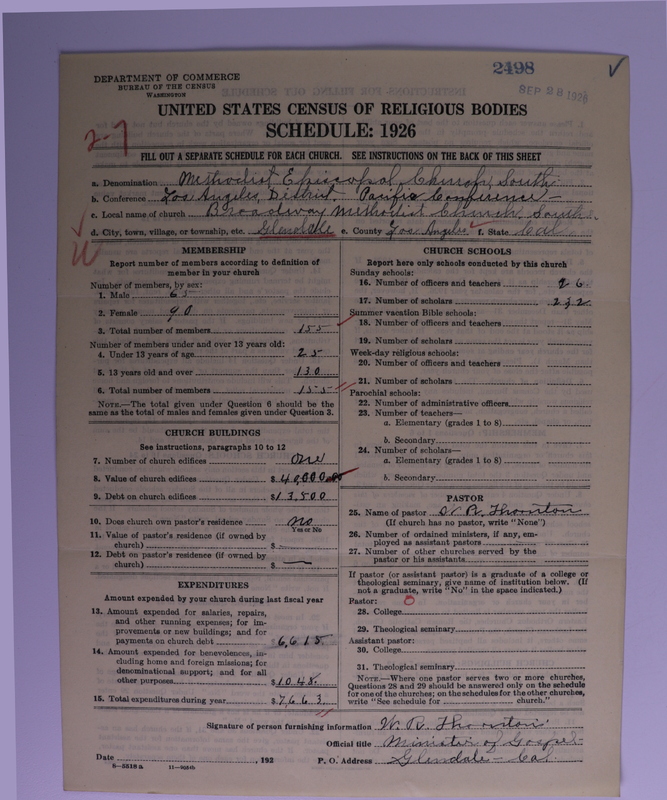 2498
SEP 28 1926
DEPARTMENT OF COMMERCE
BUREAU OF THE CENSUS
WASHINGTON
UNITED STATES CENSUS OF RELIGIOUS BODIES
SCHEDULE: 1926
2-7
FILL OUT A SEPARATE SCHEDULE FOR EACH CHURCH. SEE INSTRUCTIONS ON THE BACK OF THIS SHEET
a. Denomination Methodist Episcopal Church, South
b. Conference Los Angeles, District - Pacific Conference -
c. Local name of church Broadway Methodist Church, South.
d. City, town, village, or township, etc. Glendale e. County Los Angeles f. State Cal
W
MEMBERSHIP
Report number of members according to definition of
member in your church
Number of members, by sex:
1. Male 65
2. Female 90
3. Total number of members 155
Number of members under and over 13 years old:
4. Under 13 years of age 25
5. 13 years old and over 130
6. Total number of members 155
NOTE.—The total given under Question 6 should be the
same as the total of males and females given under Question 3.
CHURCH BUILDINGS
See instructions, paragraphs 10 to 12
7. Number of church edifices One
8. Value of church edifices $40,000.00
9. Debt on church edifices $13,500
10. Does church own pastor's residence no
Yes or No
11. Value of pastor's residence (if owned by
church) $
12. Debt on pastor's residence (if owned by
church) $ —
EXPENDITURES
Amount expended by your church during last fiscal year
13. Amount expended for salaries, repairs,
and other running expenses; for im-
provements or new buildings; and for
payments on church debt $6,615
14. Amount expended for benevolences, in-
cluding home and foreign missions; for
denominational support; and for all
other purposes $1048.
15. Total expenditures during year $7,663
CHURCH SCHOOLS
Report here only schools conducted by this church
Sunday schools:
16. Number of officers and teachers 26
17. Number of scholars 232
Summer vacation Bible schools:
18. Number of officers and teachers
19. Number of scholars
Week-day religious schools:
20. Number of officers and teachers
21. Number of scholars
Parochial schools:
22. Number of administrative officers
23. Number of teachers—
a. Elementary (grades 1 to 8)
b. Secondary
24. Number of scholars—
a. Elementary (grades 1 to 8)
b. Secondary
PASTOR
25. Name of pastor W. R. Thornton
(If church has no pastor, write "None")
26. Number of ordained ministers, if any, em-
ployed as assistant pastors
27. Number of other churches served by the
pastor or his assistants
If pastor (or assistant pastor) is a graduate of a college or
theological seminary, give name of institution below. (If
not a graduate, write "No" in the space indicated.)
Pastor: 0
28. College
29. Theological seminary
Assistant pastor:
30. College
31. Theological seminary
NOTE.—Where one pastor serves two or more churches,
Questions 28 and 29 should be answered only on the schedule
for one of the churches; on the schedules for the other churches,
write "See schedule for church."
Signature of person furnishing information W. R. Thornton
Official title Minister of Gospel
Date , 192 P. O. Address Glendale - Cal.